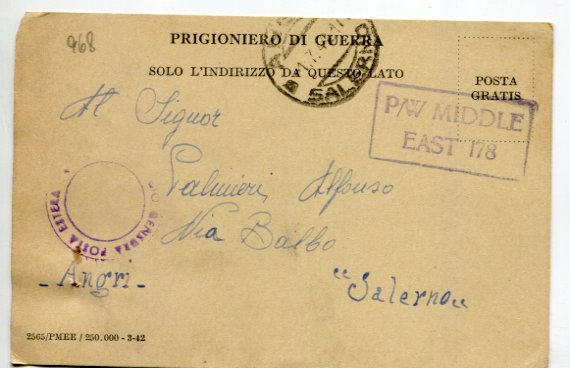 968
PRIGIONIERO DI GUERRA
SOLO L'INDIRIZZO DA QUESTO LATO
SALERNO
POSTA
GRATIS
P/W MIDDLE
EAST 178
Al Signor
Palmieri Alfonso
Via Balbo
CENSURA POSTA ESTERA
- Angri -
"Salerno"
2565/PMEE / 250.000 - 3-42